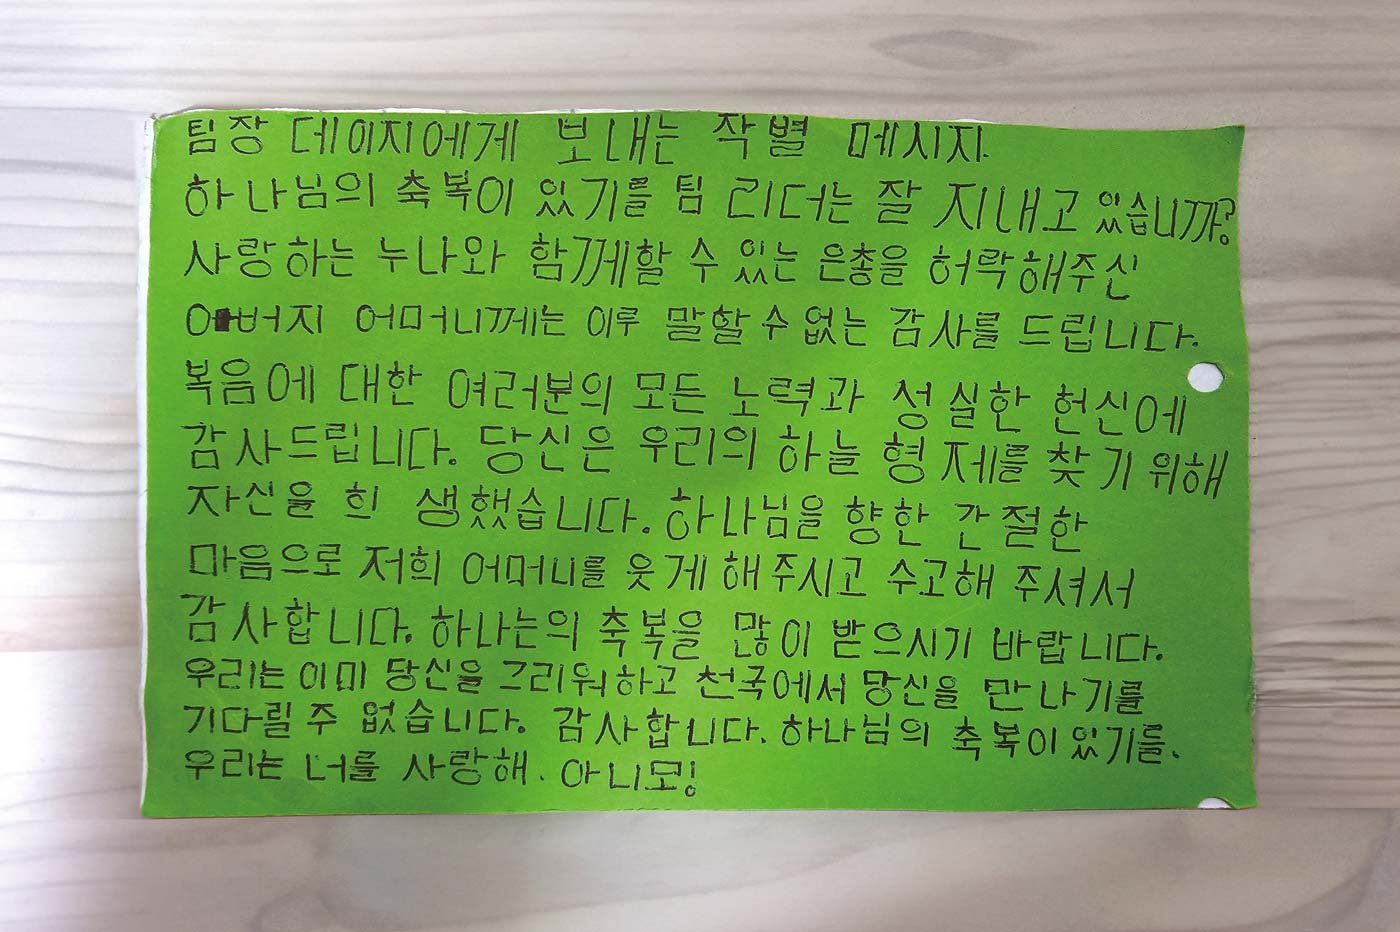 팀장 데이지에게 보내는 작별 메시지.
하나님의 축복이 있기를 팀 리더는 잘 지내고 있습니까?
사랑하는 누나와 함께할 수 있는 은총을 허락해주신
아버지 어머니께는 이루 말할 수 없는 감사를 드립니다.
복음에 대한 여러분의 모든 노력과 성실한 헌신에
감사드립니다. 당신은 우리의 하늘 형제를 찾기 위해
자신을 희 생했습니다. 하나님을 향한 간절한
마음으로 저희 어머니를 웃게 해주시고 수고해 주셔서
감사합니다. 하나는의 축복을 많이 받으시기 바랍니다.
우리는 이미 당신을 그리워하고 천국에서 당신을 만나기를
기다릴 주 없습니다. 감사합니다. 하나님의 축복이 있기를.
우리는 너를 사랑해. 아니모!